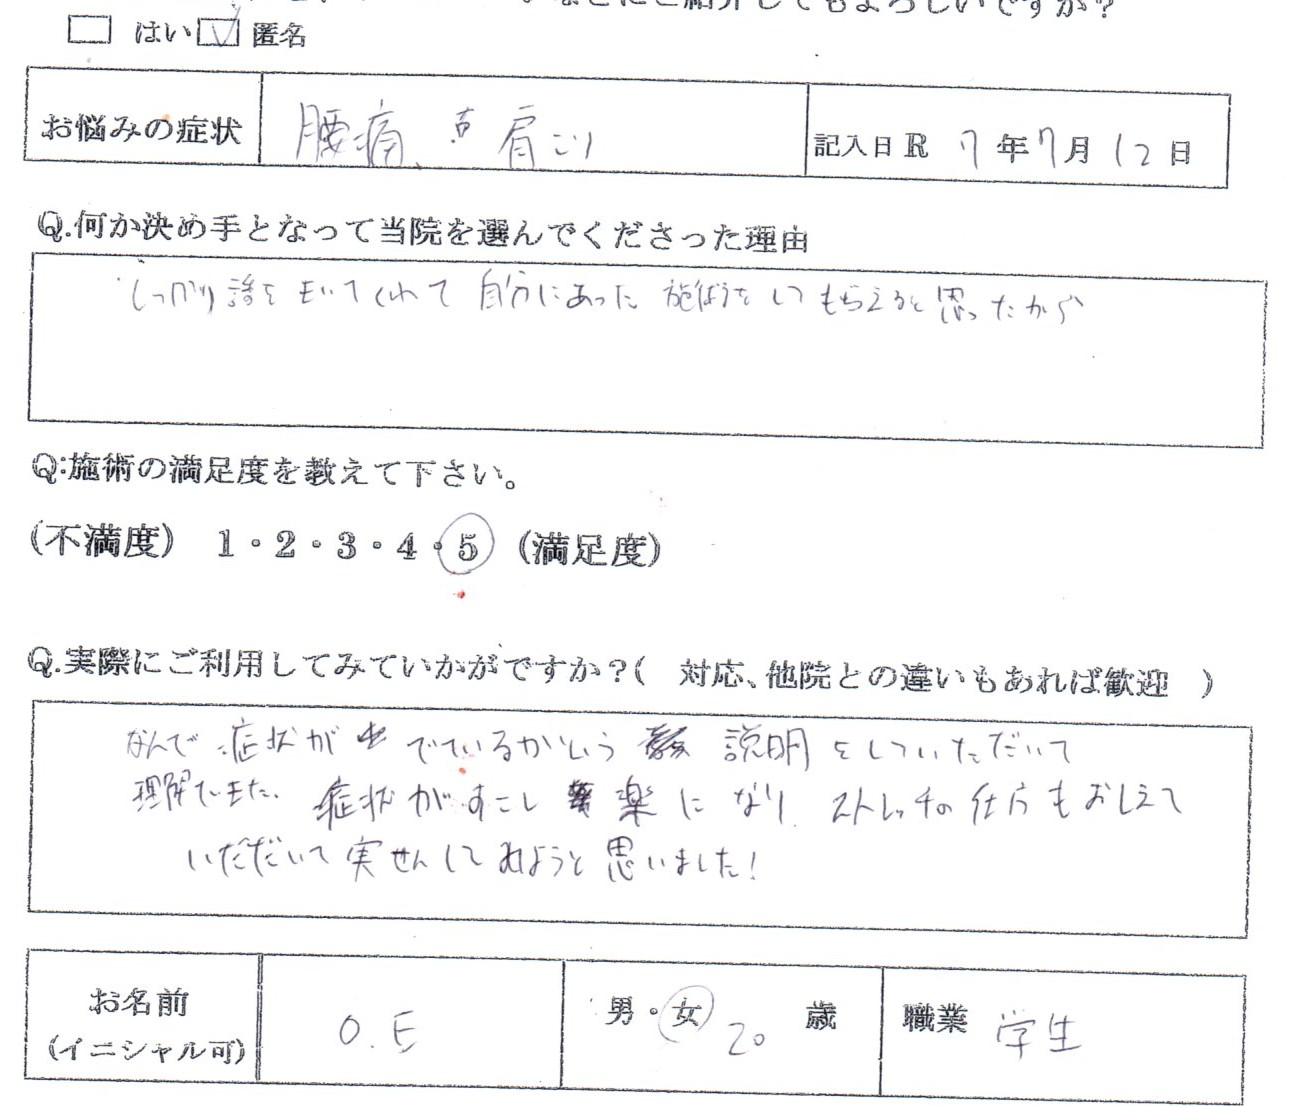 なたにご紹介してもよろしいですか？
はい 匿名
お悩みの症状 腰痛、肩こり 記入日 R 7年7月12日
Q.何か決め手となって当院を選んでくださった理由
しっかり話をきいてくれて自分にあった施術をしてもらえると思ったから
Q:施術の満足度を教えて下さい。
(不満度) 1・2・3・4・5 (満足度)
Q.実際にご利用してみていかがですか？( 対応、他院との違いもあれば歓迎 )
なんで症状がでているかという説明をしていただいて
理解できた。症状がすこし楽になり、ストレッチの仕方もおしえて
いただいて実せんしてみようと思いました！
お名前 (イニシャル可) O.E 男・女 20 歳 職業 学生